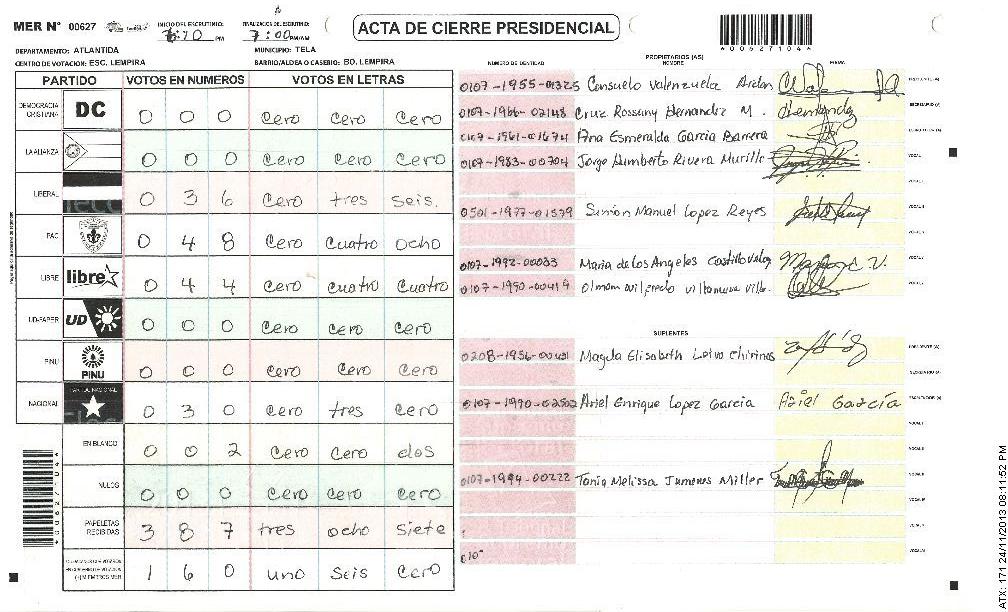 MER N° 00627 INICIO DEL ESCRUTINIO: FINALIZACION DEL ESCRUTINIO: ACTA DE CIERRE PRESIDENCIAL
7:00 PM/AM
DEPARTAMENTO: ATLANTIDA MUNICIPIO: TELA
CENTRO DE VOTACION: ESC. LEMPIRA BARRIO/ALDEA O CASERIO: BO. LEMPIRA
PARTIDO VOTOS EN NUMEROS VOTOS EN LETRAS
DEMOCRACIA CRISTIANA DC 0 0 0 Cero Cero Cero
LA ALIANZA 0 0 0 Cero Cero Cero
LIBERAL 0 3 6 Cero tres seis.
PAC 0 4 8 Cero Cuatro ocho
LIBRE libre 0 4 4 Cero Cuatro Cuatro
UD-FAPER UD 0 0 0 Cero Cero Cero
PINU PINU 0 0 0 Cero Cero Cero
NACIONAL PARTIDO NACIONAL 0 3 0 Cero tres Cero
EN BLANCO 0 0 2 Cero Cero dos
NULOS 0 0 0 Cero Cero Cero
PAPELETAS RECIBIDAS 3 8 7 tres ocho siete
1 6 0 uno seis Cero
NUMERO DE IDENTIDAD PROPIETARIOS (AS) NOMBRE FIRMA
0107-1955-01325 Consuelo Valenzuela Ardon
0107-1966-02148 Cruz Rossany Hernandez M. Hernandez
0107-1961-01674 Ana Esmeralda Garcia Barrera
0107-1983-00704 Jorge Humberto Rivera Murillo
0501-1977-01579 Simon Manuel Lopez Reyes
0107-1992-00033 Maria de Los Angeles Castillo
0107-1990-00419 Wilfredo Villanueva
SUPLENTES
0208-1956-00481 Magda Elisabeth Leiva Chirinos
0107-1990-02502 Ariel Enrique Lopez Garcia Ariel García
0107-1994-00222 Tania Melissa Jimenes Miller
010
ATX: 171 24/11/2013 08:11:52 PM